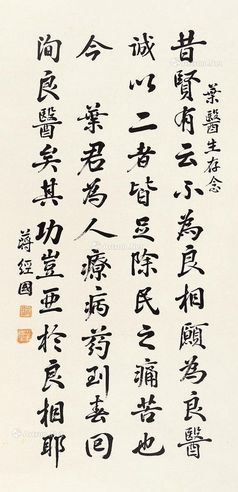 葉醫生存念
昔賢有云不為良相願為良醫
誠以二者皆足除民之痛苦也
今 葉君為人療病葯到春回
洵良醫矣其功豈亞於良相耶
蔣經國